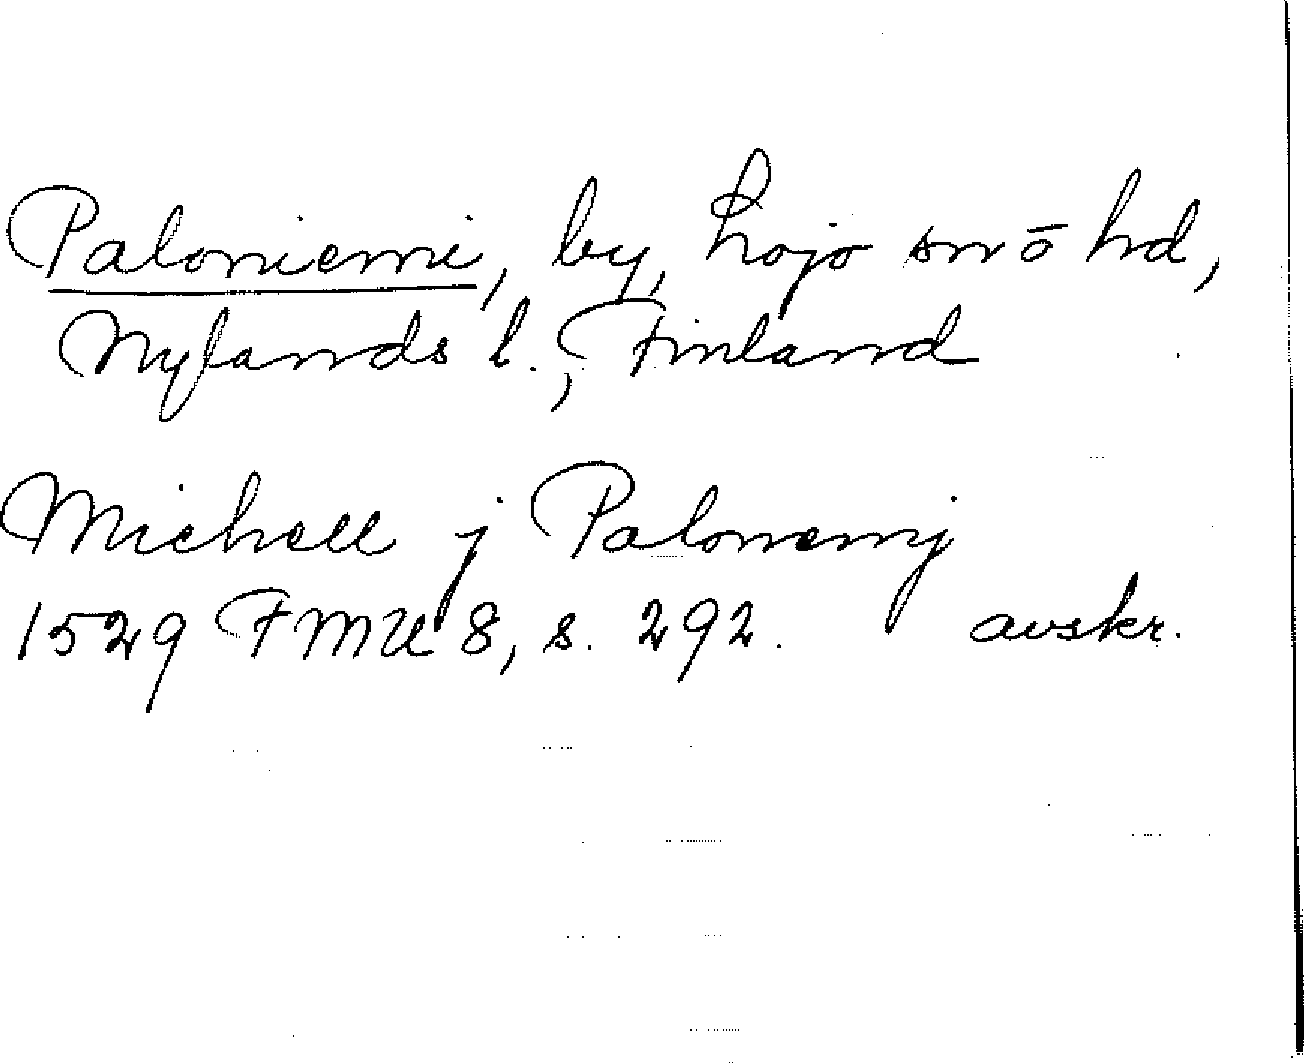 Paloniemi, by, Lojo sn o hd,
Nylands l., Finland
Michell j Palonemj
1529 FMU 8, s. 292. avskr.